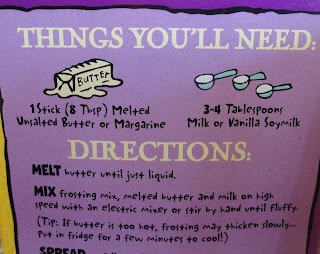 THINGS YOU'LL NEED:
BUTTER
1 Stick (8 Tbsp) Melted
Unsalted Butter or Margarine
3-4 Tablespoons
Milk or Vanilla Soymilk
DIRECTIONS:
MELT butter until just liquid.
MIX frosting mix, melted butter and milk on high
speed with an electric mixer or stir by hand until fluffy.
(Tip: If butter is too hot, frosting may thicken slowly...
Put in fridge for a few minutes to cool!)
SPREAD